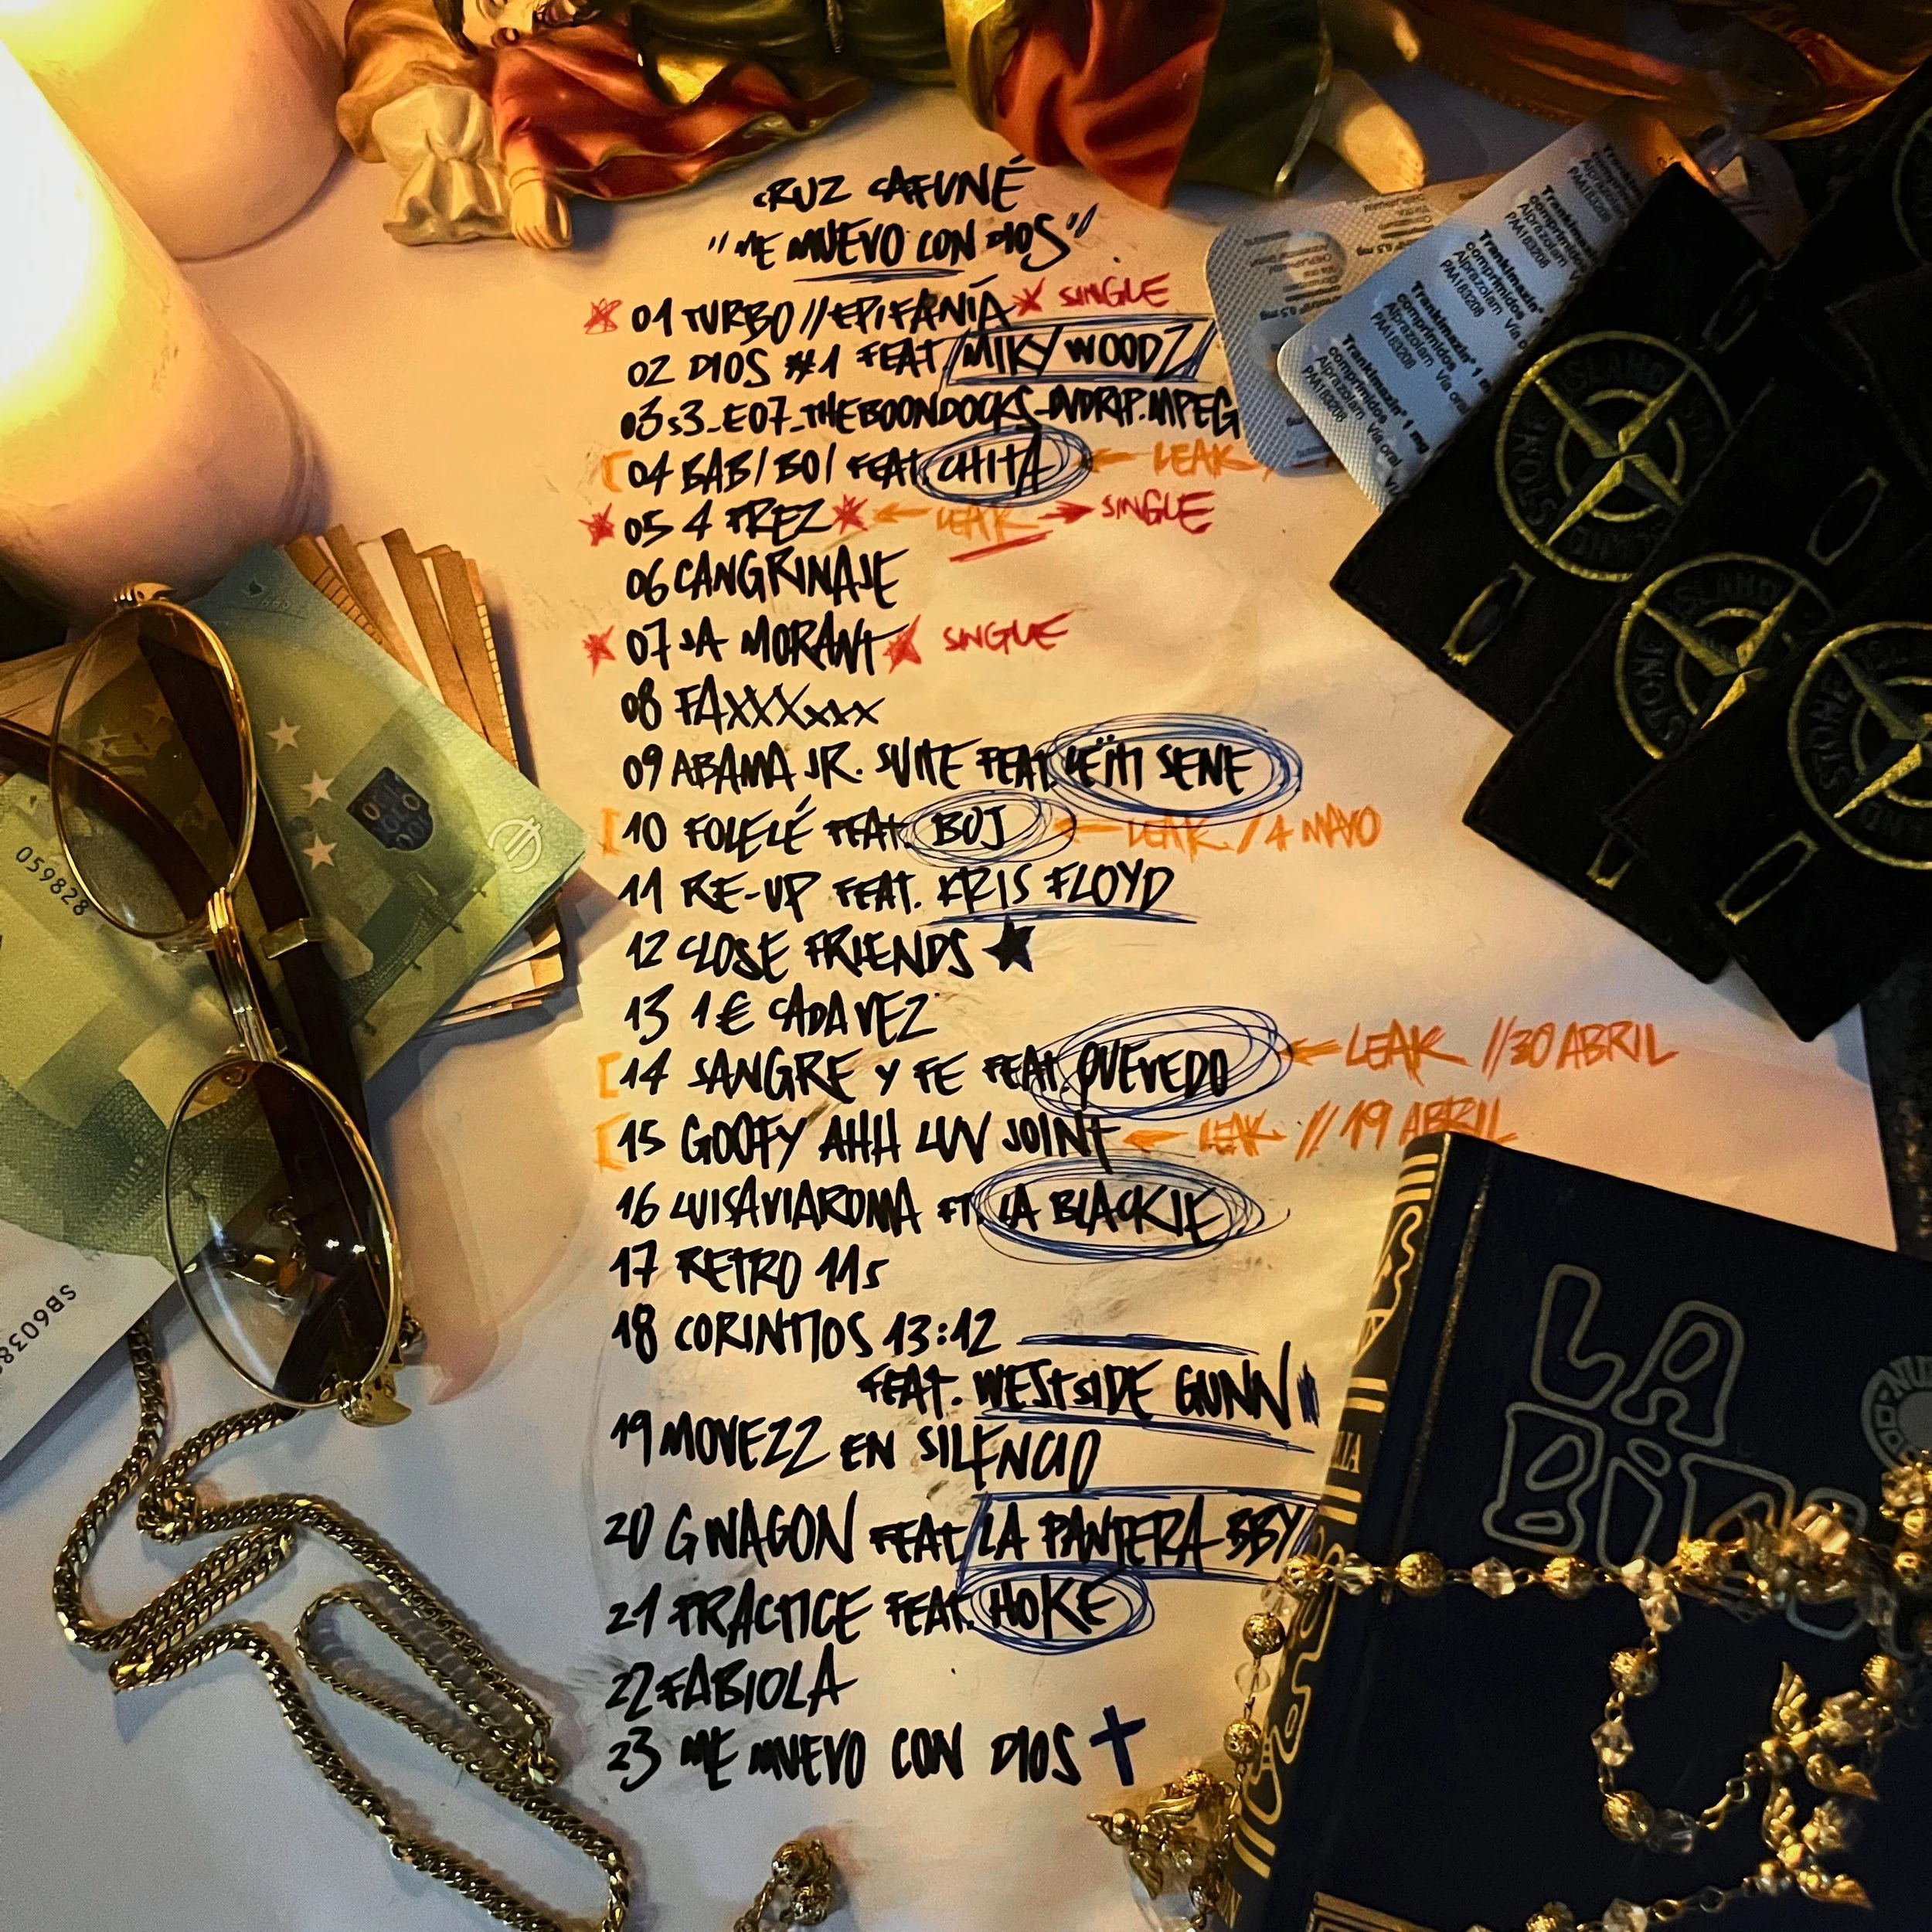 CRUZ CAFUNÉ
"ME MUEVO CON DIOS"
01 TURBO//EPIFANÍA SINGLE
02 DIOS #1 FEAT. MIKY WOODZ
03 S3_E07_THEBOONDOCKS_DVDRIP.MPEG
04 BAB/BO/ FEAT. CHITA ← LEAK /
05 4 PREZ ← LEAK → SINGLE
06 CANGRINAJE
07 JA MORANT SINGLE
08 FAXXXxxx
09 ABAMA JR. SUITE FEAT. LËITI SENE
10 FOLELÉ FEAT. BOJ ← LEAK / 4 MAYO
11 RE-UP FEAT. KRIS FLOYD
12 CLOSE FRIENDS ★
13 1€ CADA VEZ
14 SANGRE Y FE FEAT. QUEVEDO ← LEAK //30 ABRIL
15 GOOFY AHH LUV JOINT ← LEAK //19 ABRIL
16 LUISAVIAROMA FT. LA BLACKIE
17 RETRO 11S
18 CORINTIOS 13:12
FEAT. WESTSIDE GUNN
19 MOVEZZ EN SILENCIO
20 G WAGON FEAT. LA PANTERA BBY
21 PRACTICE FEAT. HOKE
22 FABIOLA
23 ME MUEVO CON DIOS ✝
Trankimazin® 1 mg
comprimidos
Alprazolam Vía oral
PAA183208
Trankimazin® 1 mg
comprimidos
Alprazolam Vía oral
PAA183208
STONE ISLAND
STONE ISLAND
STONE
059828
SB6038
LA